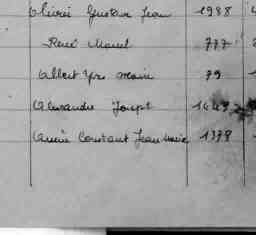 Olivier Gustave Jean 1988
René Marcel 777
Albert Yves Marie 79
Alexandre Joseph 1449
Aimée Constant Jean Marie 1378